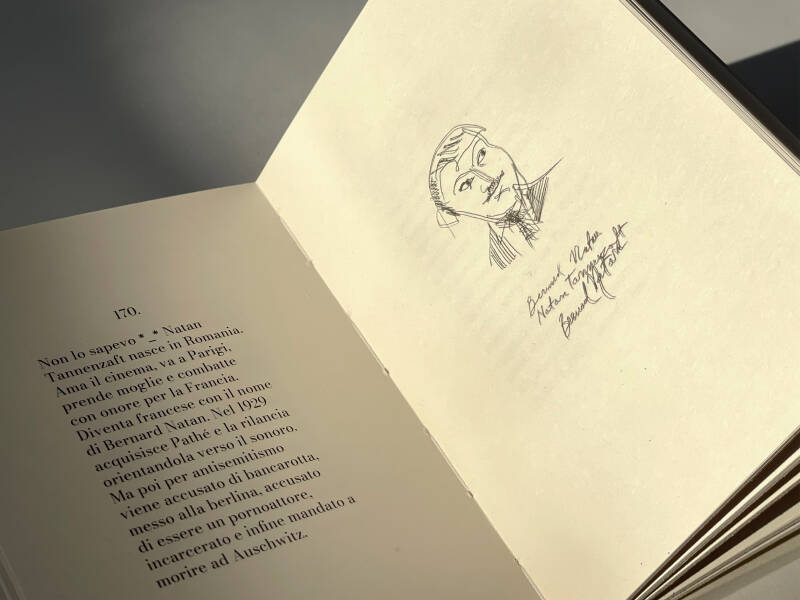 170.
Non lo sapevo *_* Natan
Tannenzaft nasce in Romania.
Ama il cinema, va a Parigi,
prende moglie e combatte
con onore per la Francia.
Diventa francese con il nome
di Bernard Natan. Nel 1929
acquisisce Pathé e la rilancia
orientandola verso il sonoro.
Ma poi per antisemitismo
viene accusato di bancarotta,
messo alla berlina, accusato
di essere un pornoattore,
incarcerato e infine mandato a
morire ad Auschwitz.
Bernard Natan
Natan Tannenzaft
Bernard Natan